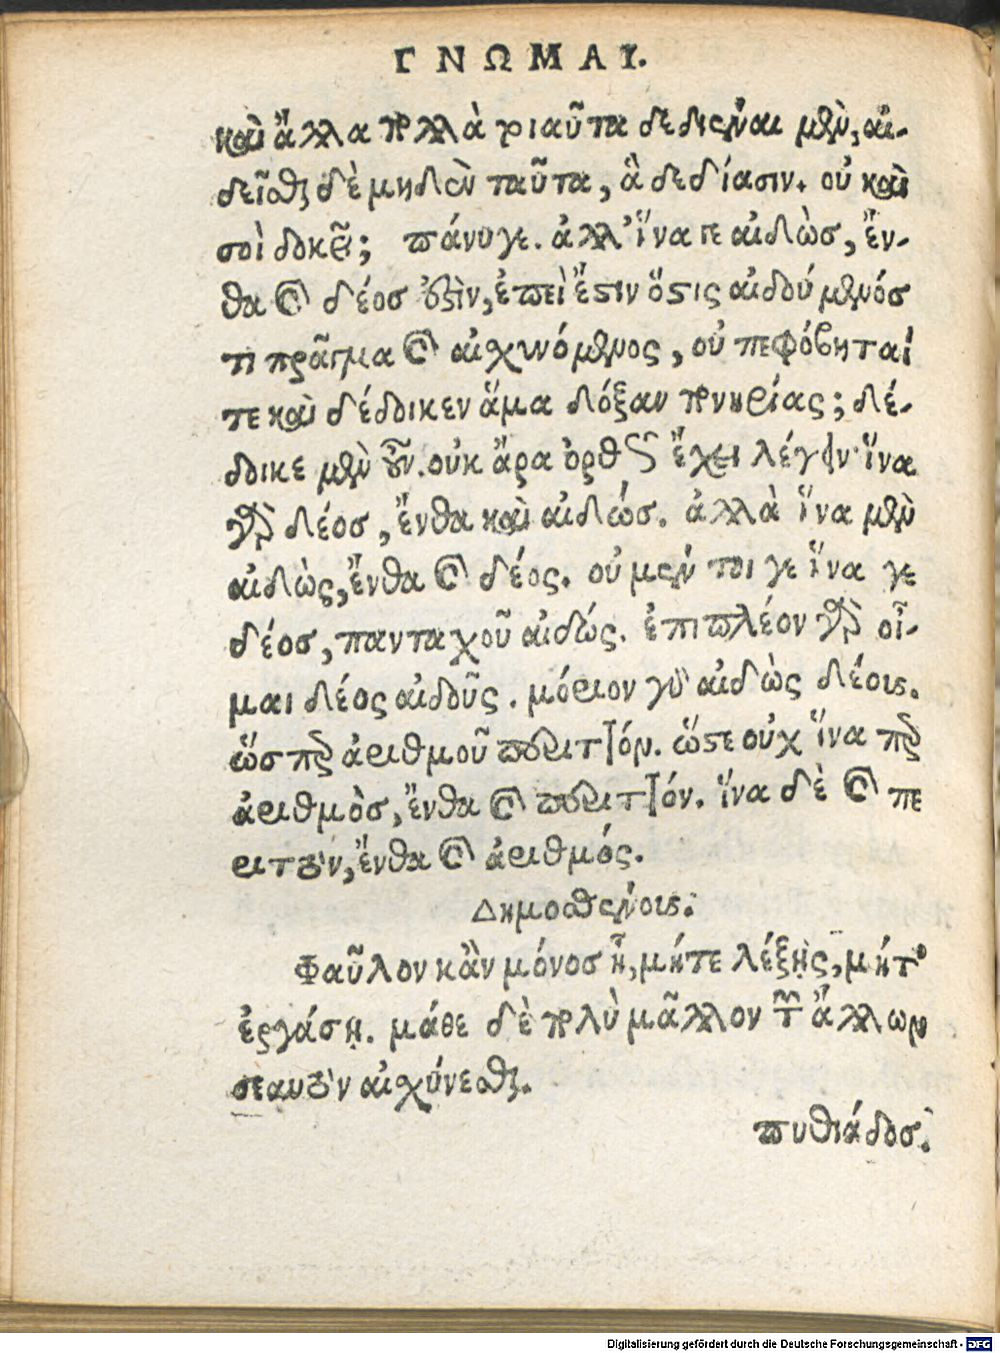 ΓΝΩΜΑΙ.
καὶ ἄλλα πολλὰ τοιαῦτα δεδιέναι μὲν, αἰ-
δεῖσθαι δὲ μηδὲν ταῦτα, ἃ δεδίασιν. οὐ καὶ
σοὶ δοκεῖ; πάνυ γε. ἀλλ' ἵνα γε αἰδὼς, ἔν-
θα καὶ δέος ἐστὶν, ἐπεὶ ἔστιν ὅστις αἰδούμενός
τι πρᾶγμα καὶ αἰσχυνόμενος, οὐ πεφόβηταί
τε καὶ δέδοικεν ἅμα δόξαν πονηρίας; δέ-
δοικε μὲν οὖν. οὐκ ἄρα ὀρθῶς ἔχει λέγειν· ἵνα
γὰρ δέος, ἔνθα καὶ αἰδώς. ἀλλὰ ἵνα μὲν
αἰδὼς, ἔνθα καὶ δέος. οὐ μέν τοι γε ἵνα γε
δέος, πανταχοῦ αἰδώς. ἐπιπλέον γὰρ οἶ-
μαι δέος αἰδοῦς. μόριον γὰρ αἰδὼς δέους.
ὥσπερ ἀριθμοῦ περιττόν. ὥστε οὐχ ἵνα περ
ἀριθμὸς, ἔνθα καὶ περιττόν. ἵνα δὲ καὶ πε
ριττὸν, ἔνθα καὶ ἀριθμός.
Δημοσθένους.
Φαῦλον κἂν μόνος ᾖ, μήτε λέξῃς, μήτ'
ἐργάσῃ. μάθε δὲ πολὺ μᾶλλον τῶν ἄλλων
σεαυτὸν αἰσχύνεσθαι.
πυθιάδος.
Digitalisierung gefördert durch die Deutsche Forschungsgemeinschaft - DFG